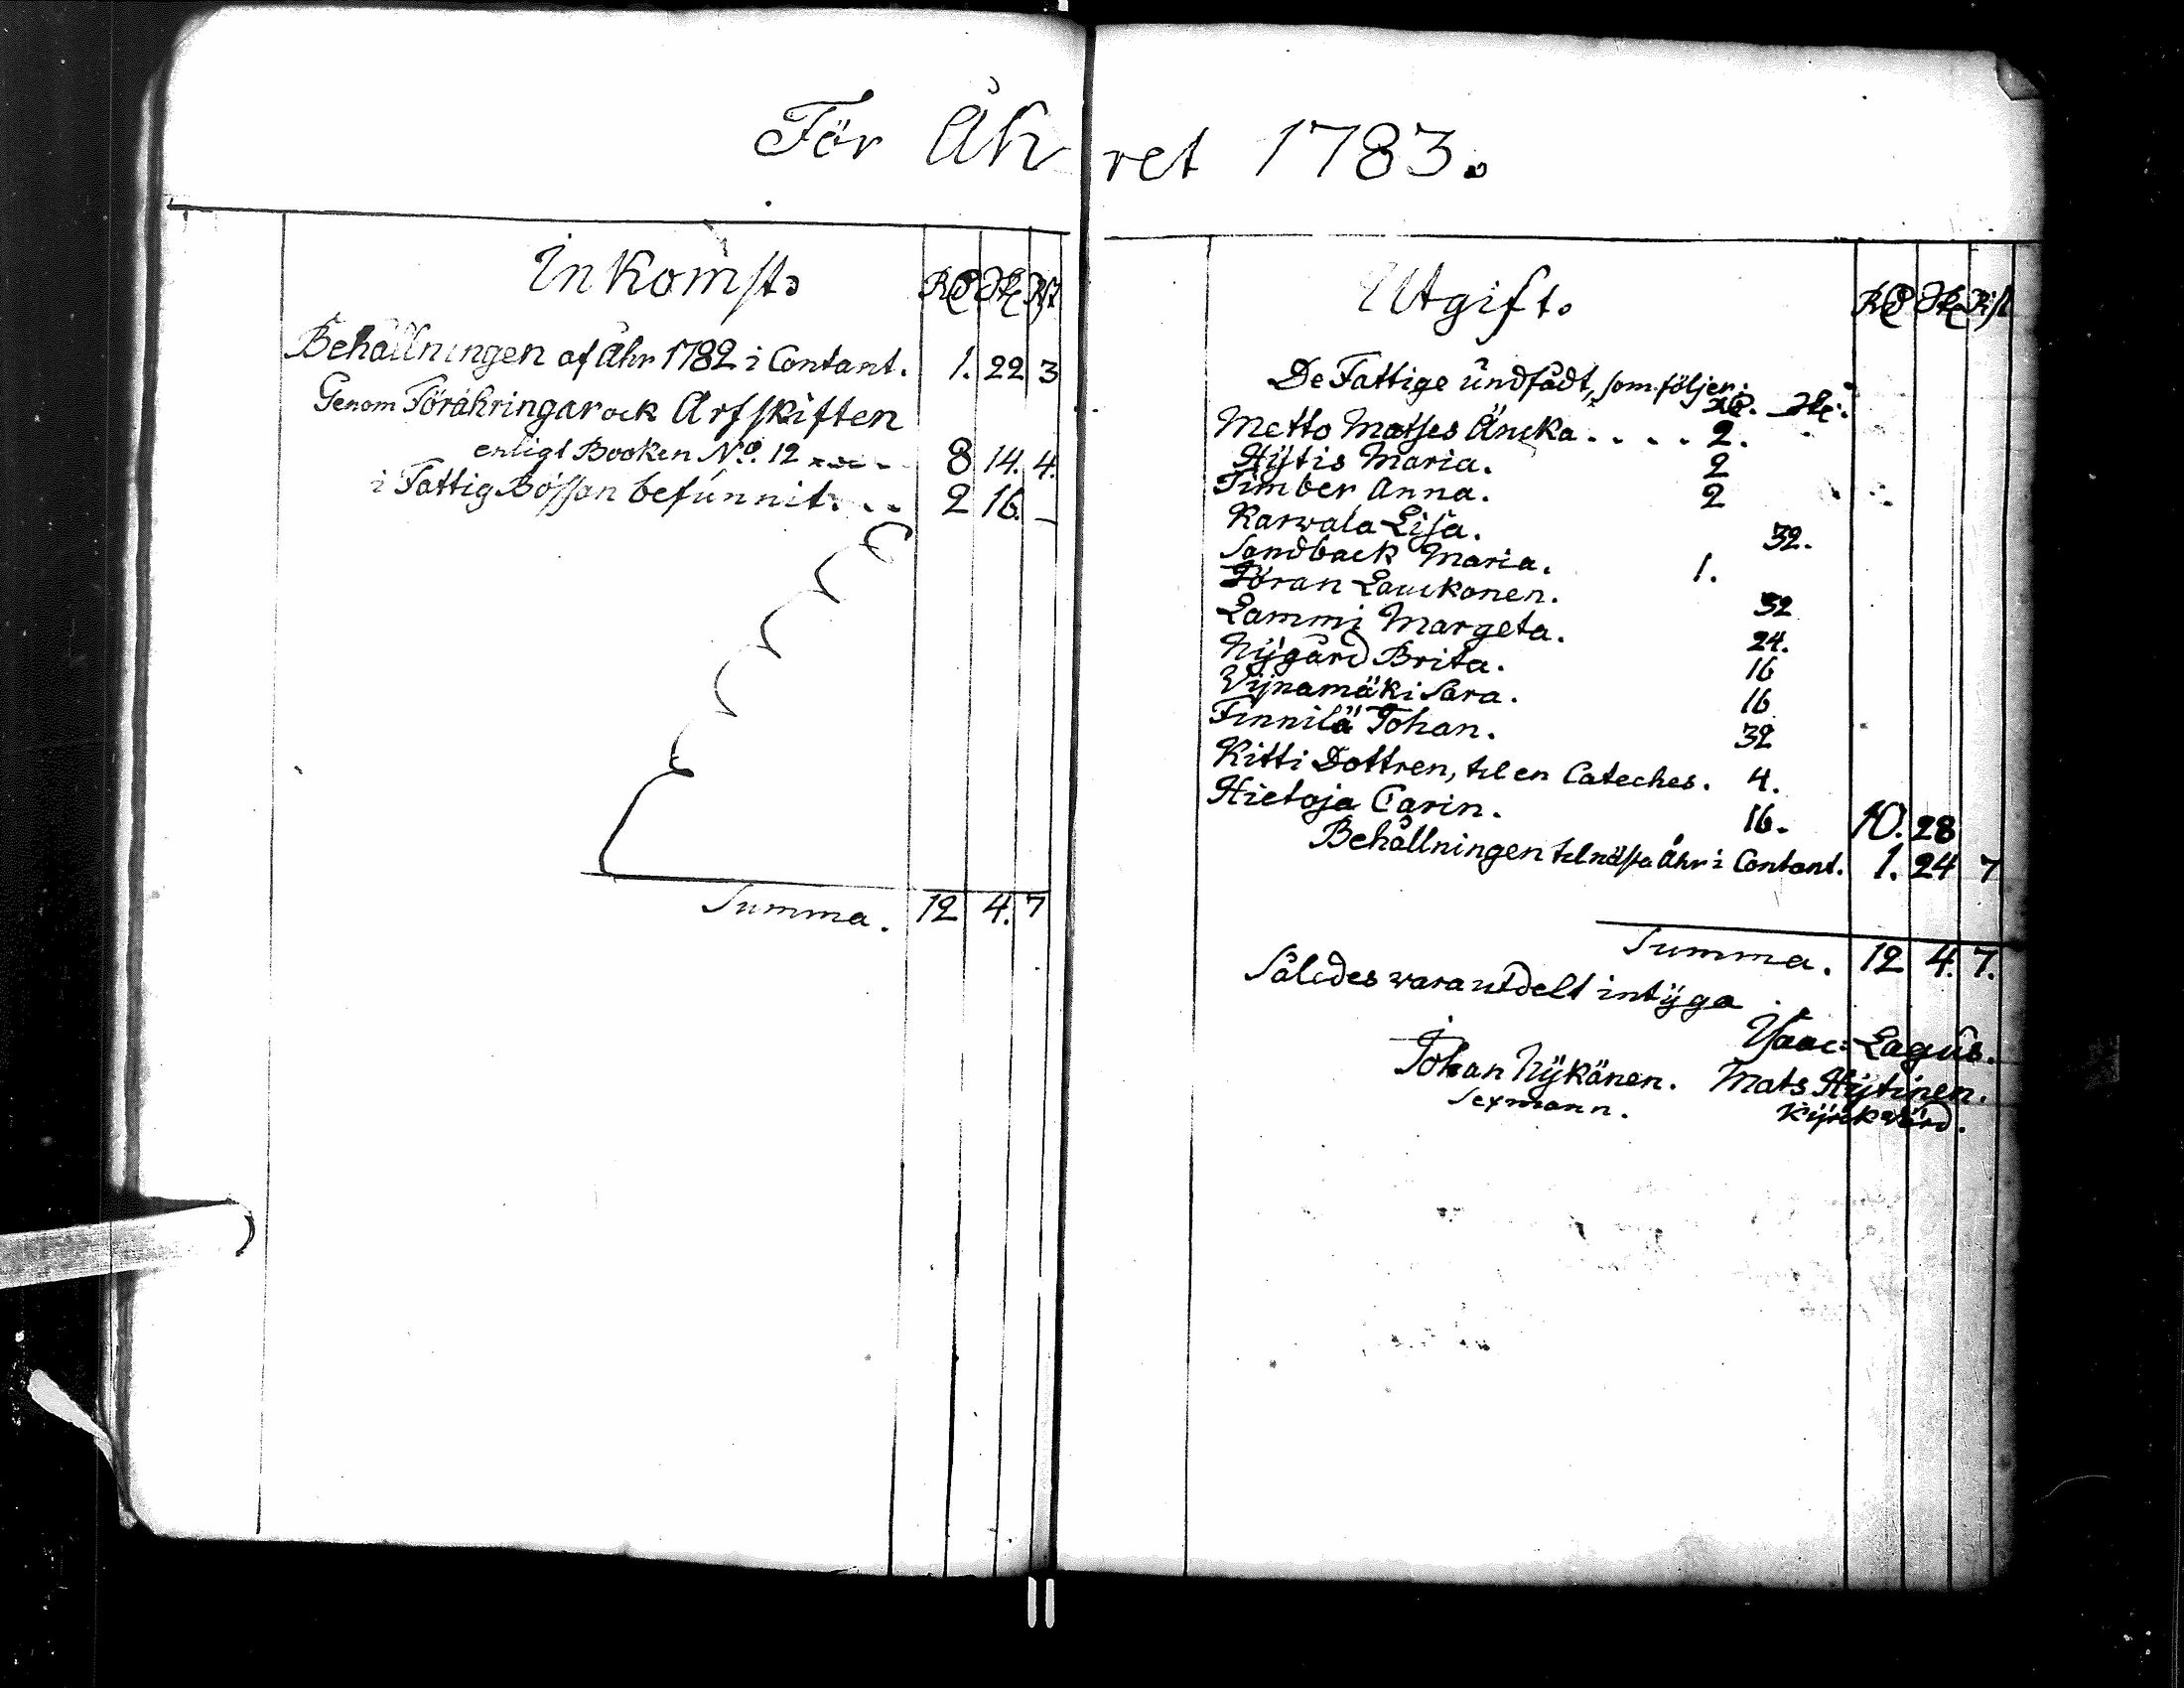 För Åhret 1783.
Inkomst. Rd Sk Rst
Behållningen af Åhr 1782 i Contant. 1. 22 3
Genom Föråhringar ock Arfskiften
enligt Booken No. 12 8 14. 4.
i Fattig Bössan befunnit. . . 2 16. -
Summa. 12 4. 7
Utgift. Rd Sk Rst
De Fattige undfådt, som följer: Rd. Sk:
Metto Matses Äncka. . . . . 2.
Hÿtis Maria. 2
Timber Anna. 2
Karwala Lisa. 32.
Sandback Maria. 1.
Jöran Lauckanen. 32
Lammi Margeta. 24.
Nÿgård Brita. 16
Vijnamäki Sara. 16
Finnilä Johan. 32
Kitti Dottren, til en Cateches. 4.
Hietoja Carin. 16. 10. 28
Behållningen til nästa Åhr i Contant. 1. 24 7
Summa. 12 4. 7.
Således vara utdelt intÿga
Isaac Lagus.
Johan Nÿkänen. Mats Hÿtinen.
Sexmann. Kÿrckvärd.